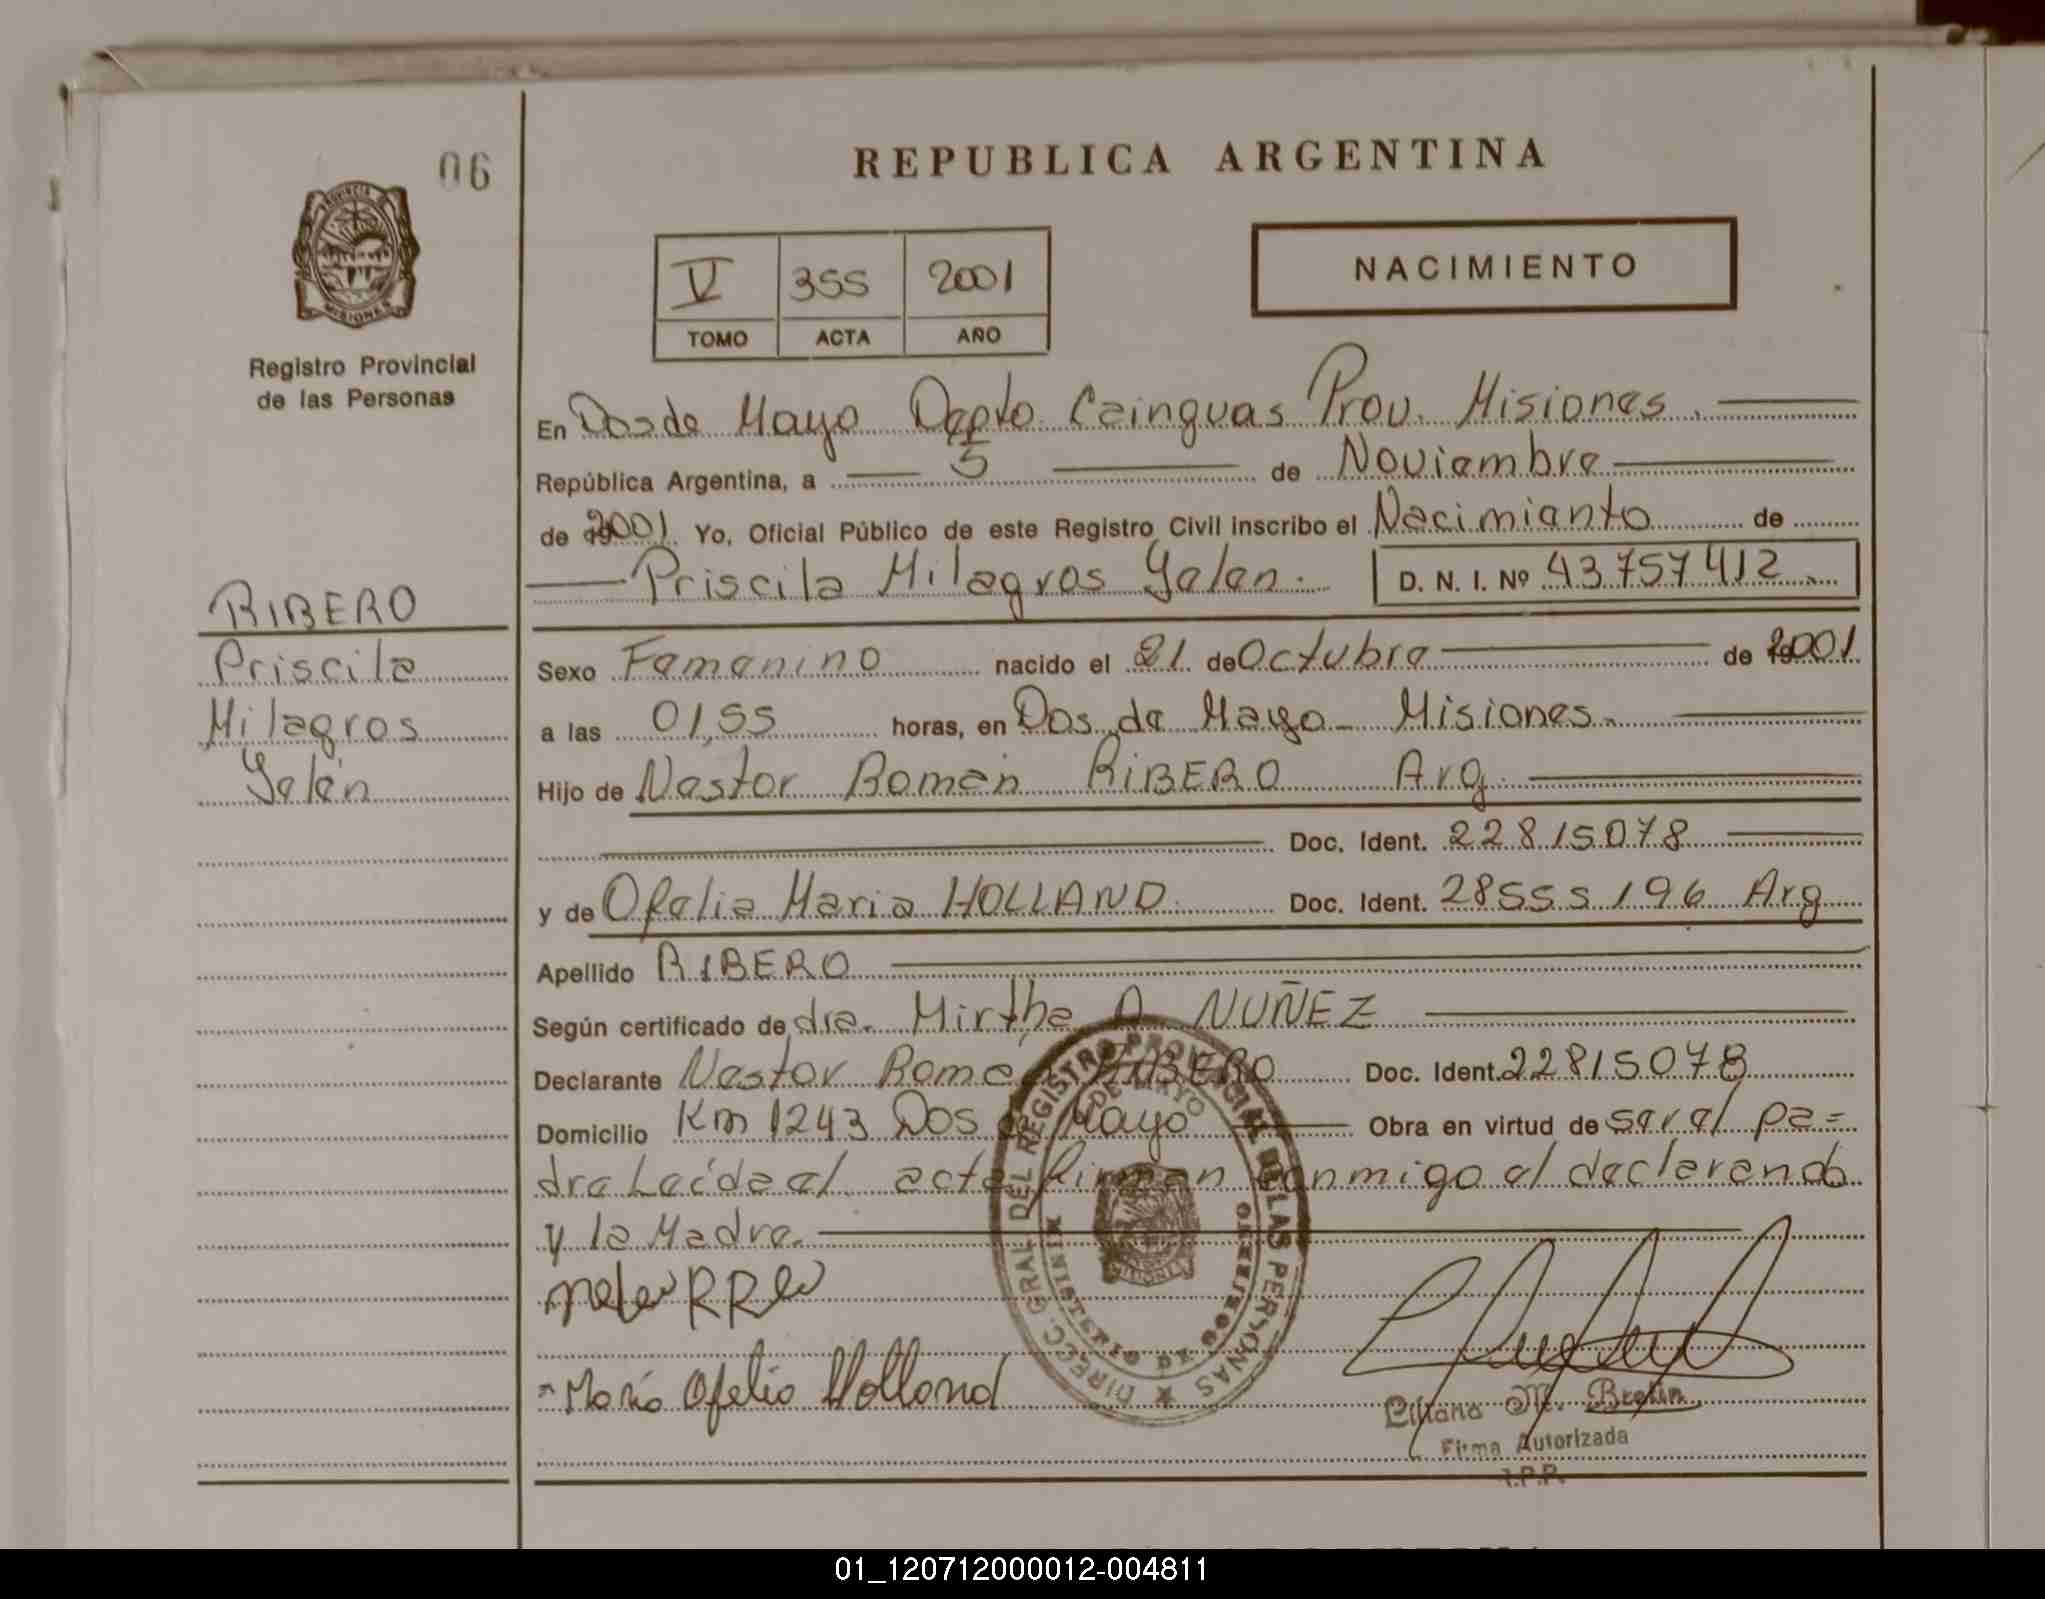 06
REPUBLICA ARGENTINA
V 355 2001
TOMO ACTA AÑO
NACIMIENTO
PROVINCIA DE
MISIONES
Registro Provincial
de las Personas
En Dos de Mayo Depto. Cainguas Prov. Misiones.
República Argentina, a 5 de Noviembre
de 2001 Yo, Oficial Público de este Registro Civil inscribo el Nacimiento de
Priscila Milagros Yalen. D. N. I. Nº 43757412
RIBERO
Priscila
Milagros
Yalén
Sexo Femenino nacido el 21 de Octubre de 2001
a las 01,55 horas, en Dos de Mayo - Misiones.
Hijo de Nestor Román RIBERO Arg.
Doc. Ident. 22815078
y de Ofelia Maria HOLLAND Doc. Ident. 28555196 Arg
Apellido RIBERO
Según certificado de dra. Mirtha A. NUÑEZ
Declarante Nestor Román RIBERO Doc. Ident. 22815078
Domicilio Km 1243 Dos de Mayo Obra en virtud de ser el pa=
dre Leída el acta firman conmigo el declarando
y la Madre.
María Ofelia Holland
DIRECC. GRAL DEL REGISTRO PROVINCIAL DE LAS PERSONAS
2 DE MAYO
MINISTERIO DE GOBIERNO
MISIONES
Liliana M.
Firma Autorizada
01_120712000012-004811